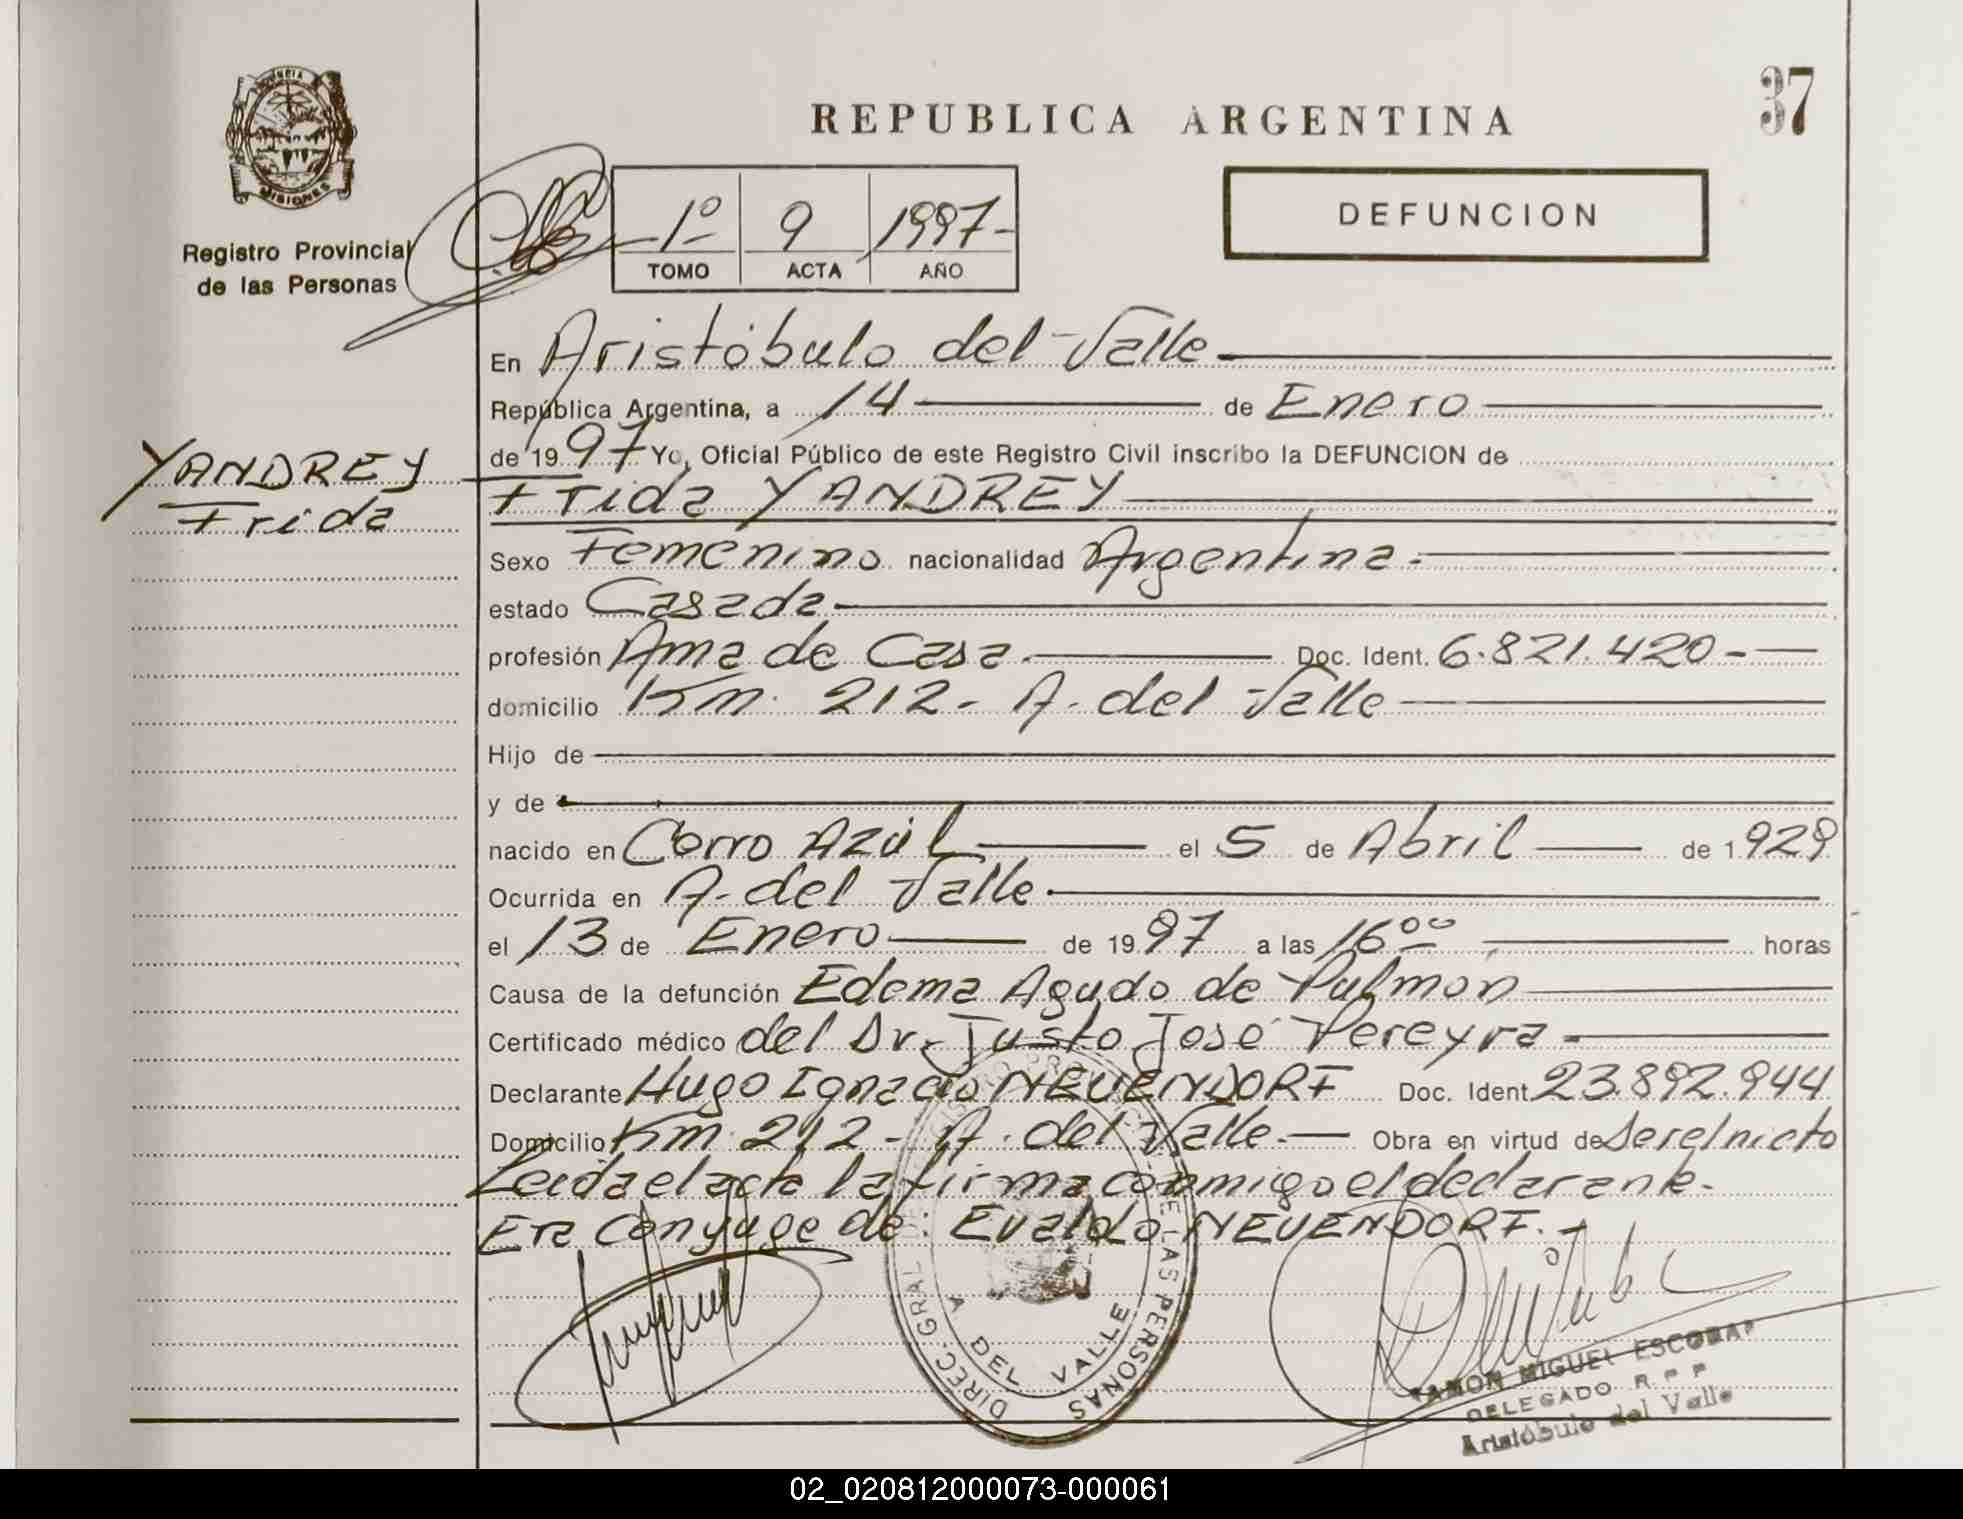 37
PROVINCIA
MISIONES
REPUBLICA ARGENTINA
Registro Provincial
de las Personas
1º 9 1997-
TOMO ACTA AÑO
DEFUNCION
En Aristóbulo del Valle
República Argentina, a 14 de Enero
de 1997 Yo, Oficial Público de este Registro Civil inscribo la DEFUNCION de
YANDREY
Frida
Frida YANDREY
Sexo Femenino nacionalidad Argentina.
estado Casada
profesión Ama de Casa. Doc. Ident. 6.821.420-
domicilio Km. 212- A. del Valle
Hijo de
y de
nacido en Cerro Azúl el 5 de Abril de 1.929
Ocurrida en A. del Valle.
el 13 de Enero de 1997 a las 16⁰⁰ horas
Causa de la defunción Edema Agudo de Pulmón
Certificado médico del Dr. Justo José Pereyra.
Declarante Hugo Ignacio NEUENDORF Doc. Ident. 23.892.944
Domicilio Km. 212- A. del Valle.- Obra en virtud de Ser el nieto
Leída el acta la firma conmigo el declarante.
Era Conyuge de: Evaldo NEUENDORF.-
DIREC. GRAL. DE LAS PERSONAS
A DEL VALLE
RAMON MIGUEL ESCOBAR
DELEGADO R P P
Aristóbulo del Valle
02_020812000073-000061